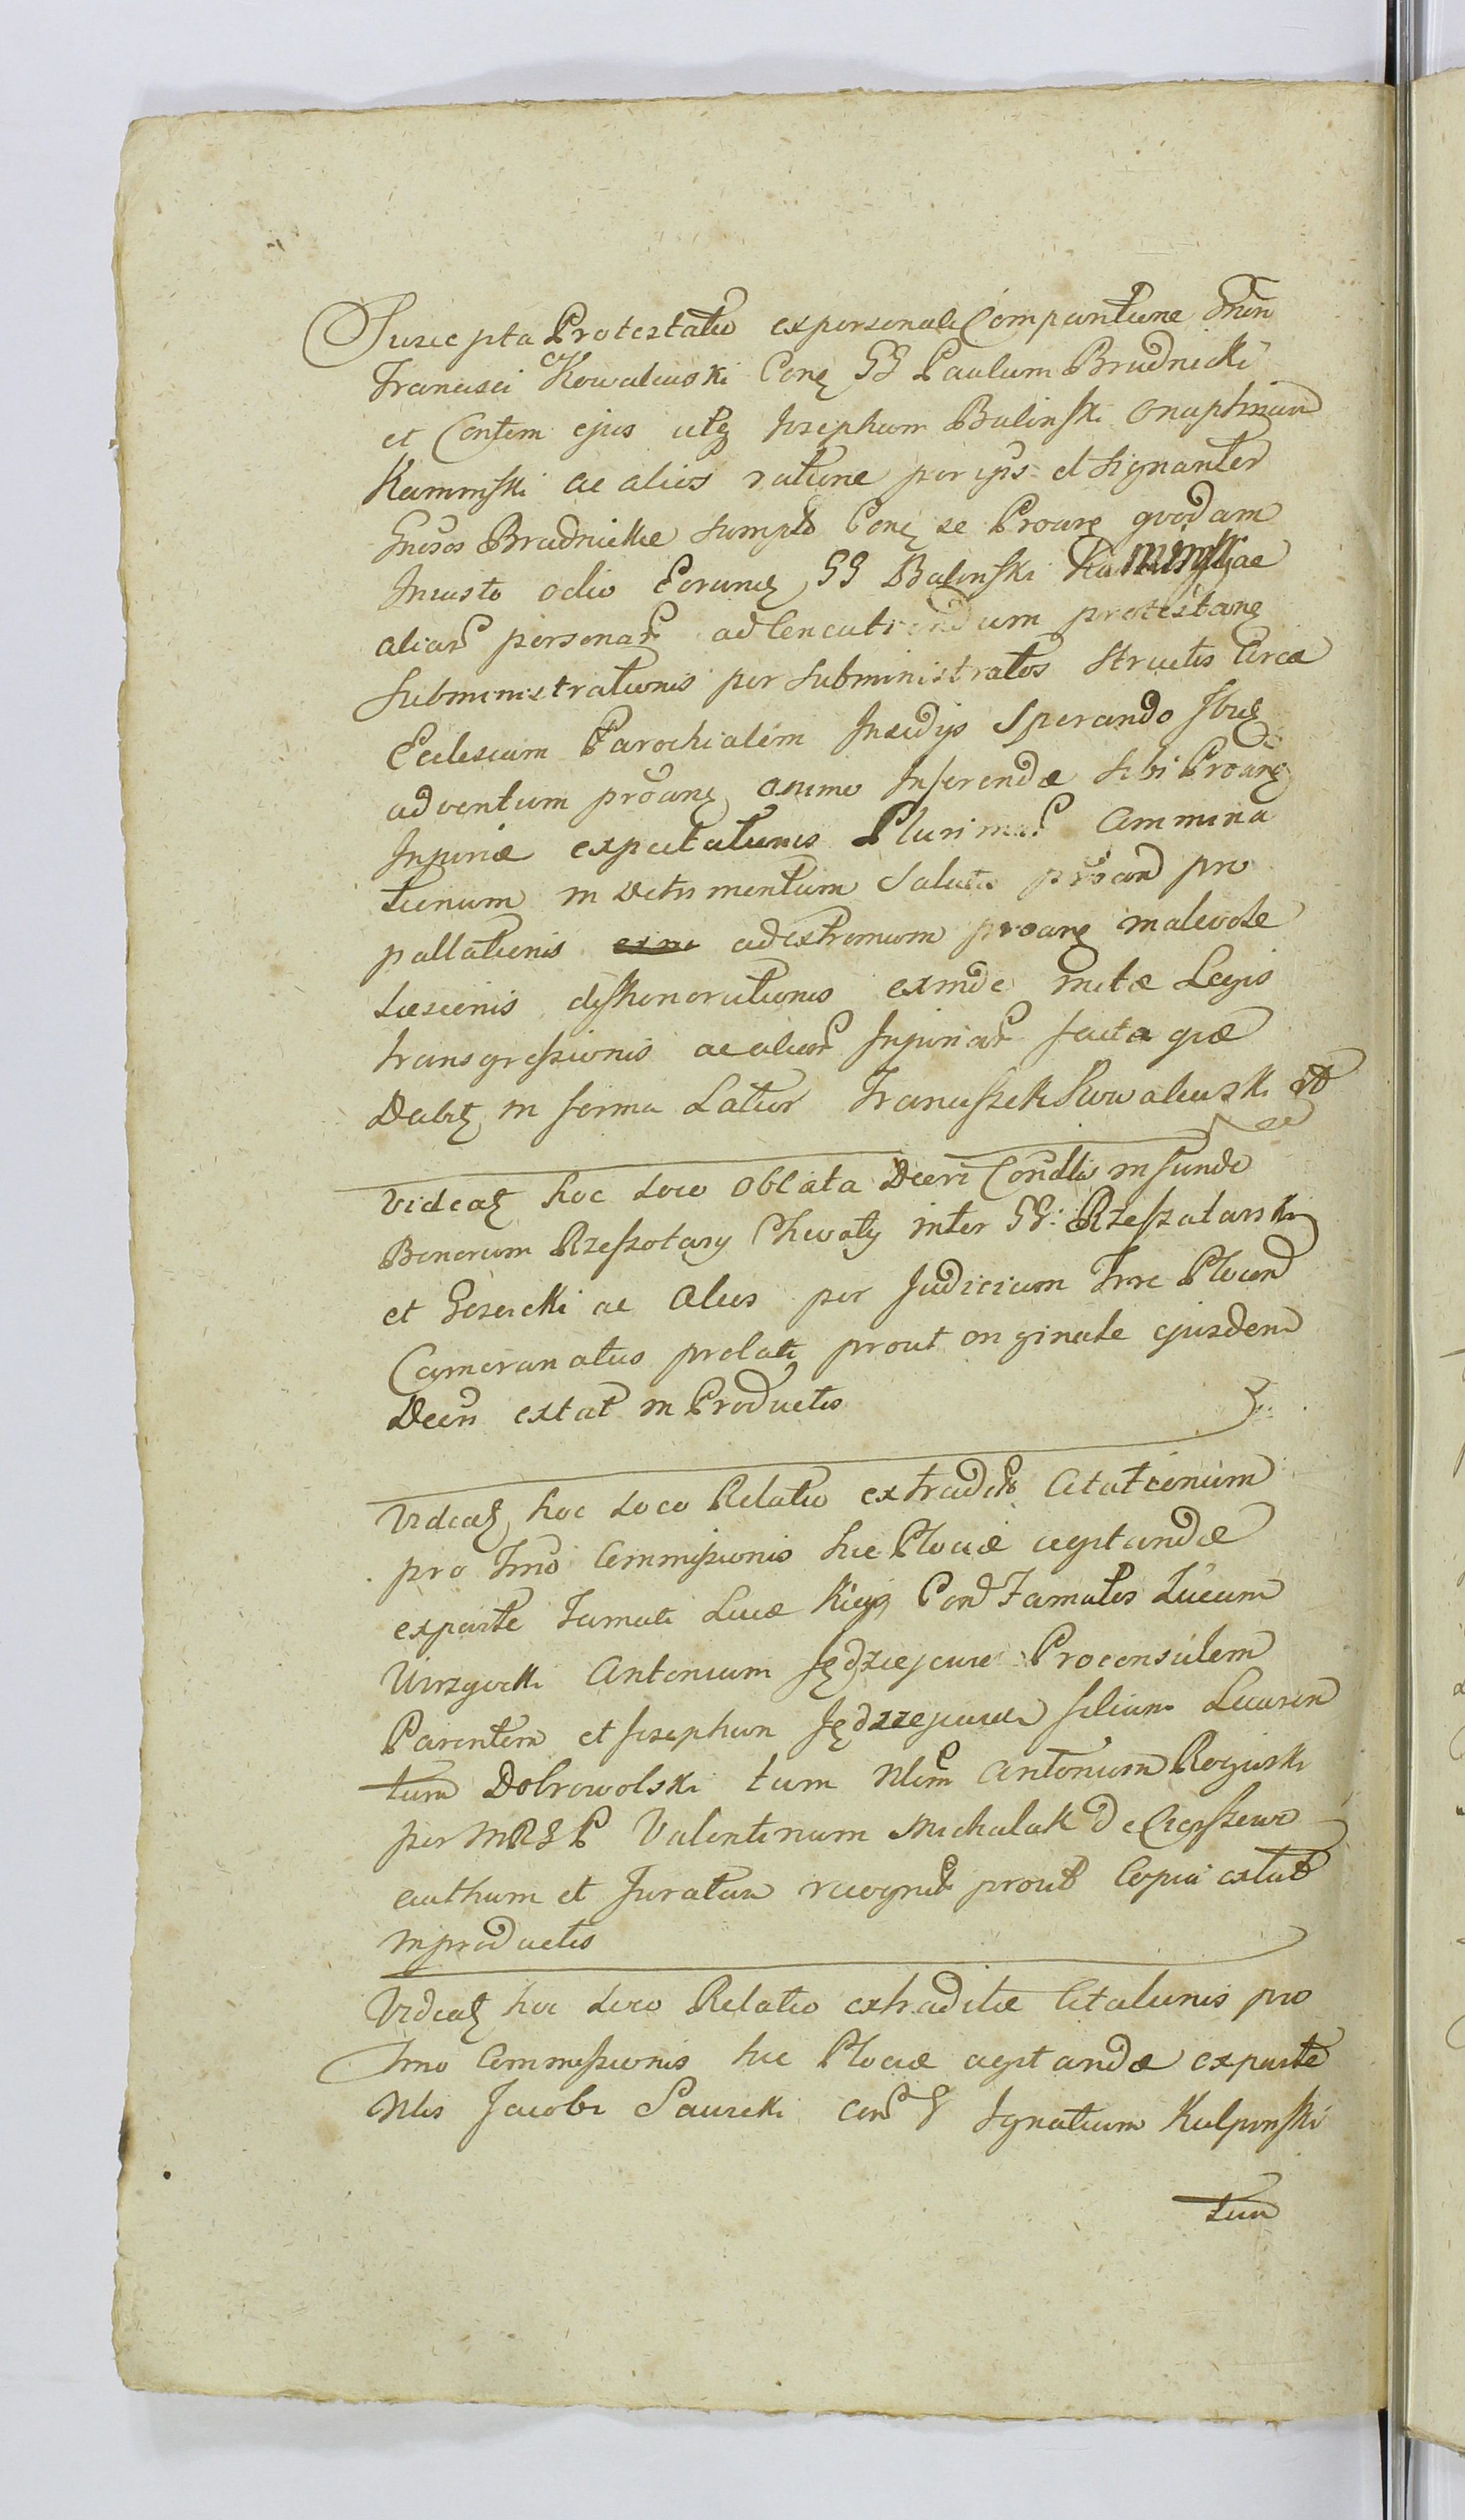 Suscepta Protestatio ex personali Comparitione Gnen
Francisci Kowalewski Conq GG Paulum Brudnicki
et Contem ejus utq Josephum Bulinski Onuphrium
Kaminski ac alios ratione per ips et signanter
Gnosos Brudnickie sumpto Conq se Proanq quodam
Injusto odio Eorumq GG Bulinski Kaminski ac
aliar personar ad protestanq
subministrationis per subministratos structis Circa
Ecclesiam Parochialem Insidijs Sperando Ibiq
adventum proanq animo Inferendæ sibi Proanq
Injuriæ expectationis Plurimar Ammina
tionum in Detrimentum Salutis pro
pallationis ad extremum proanq malevole
læsionis dishonorationis exinde Legis
transgressionis ac aliar Injuriar facta quæ
Debiq in forma Latior Franciszek Kowalewski
Videatq hoc Loco Oblata Decri Condlis in fundo
Bonorum Rzeszotary Chwały inter GG: Rzeszotarski
et Gozicki ac Alios per Judicium Trre Plocen
Cameranatus prolati prout originale ejusdem
Decri extat in Productis
Videatq hoc Loco Relatio extradit Citationum
pro Trno Commissionis hic Plociæ agitandæ
ex parte Famati Lucæ Con Famatos Lucam
Antonium Jędrzejewi Proconsulem
Parentem et Josephum Jędrzejewi filium Lauren
tum Dobrowolski tum Nlem Antonium Rogiński
per MRGP Valentinum Michalak De
authum et Juratum recognit prout Copia extat
in productis
Videatq hoc Loco Relatio extraditæ Citationis pro
Trno Commissionis hic Plociæ agitandæ ex parte
Nlis Jacobi Saucki Con G Ignatium Kulpinski
tum